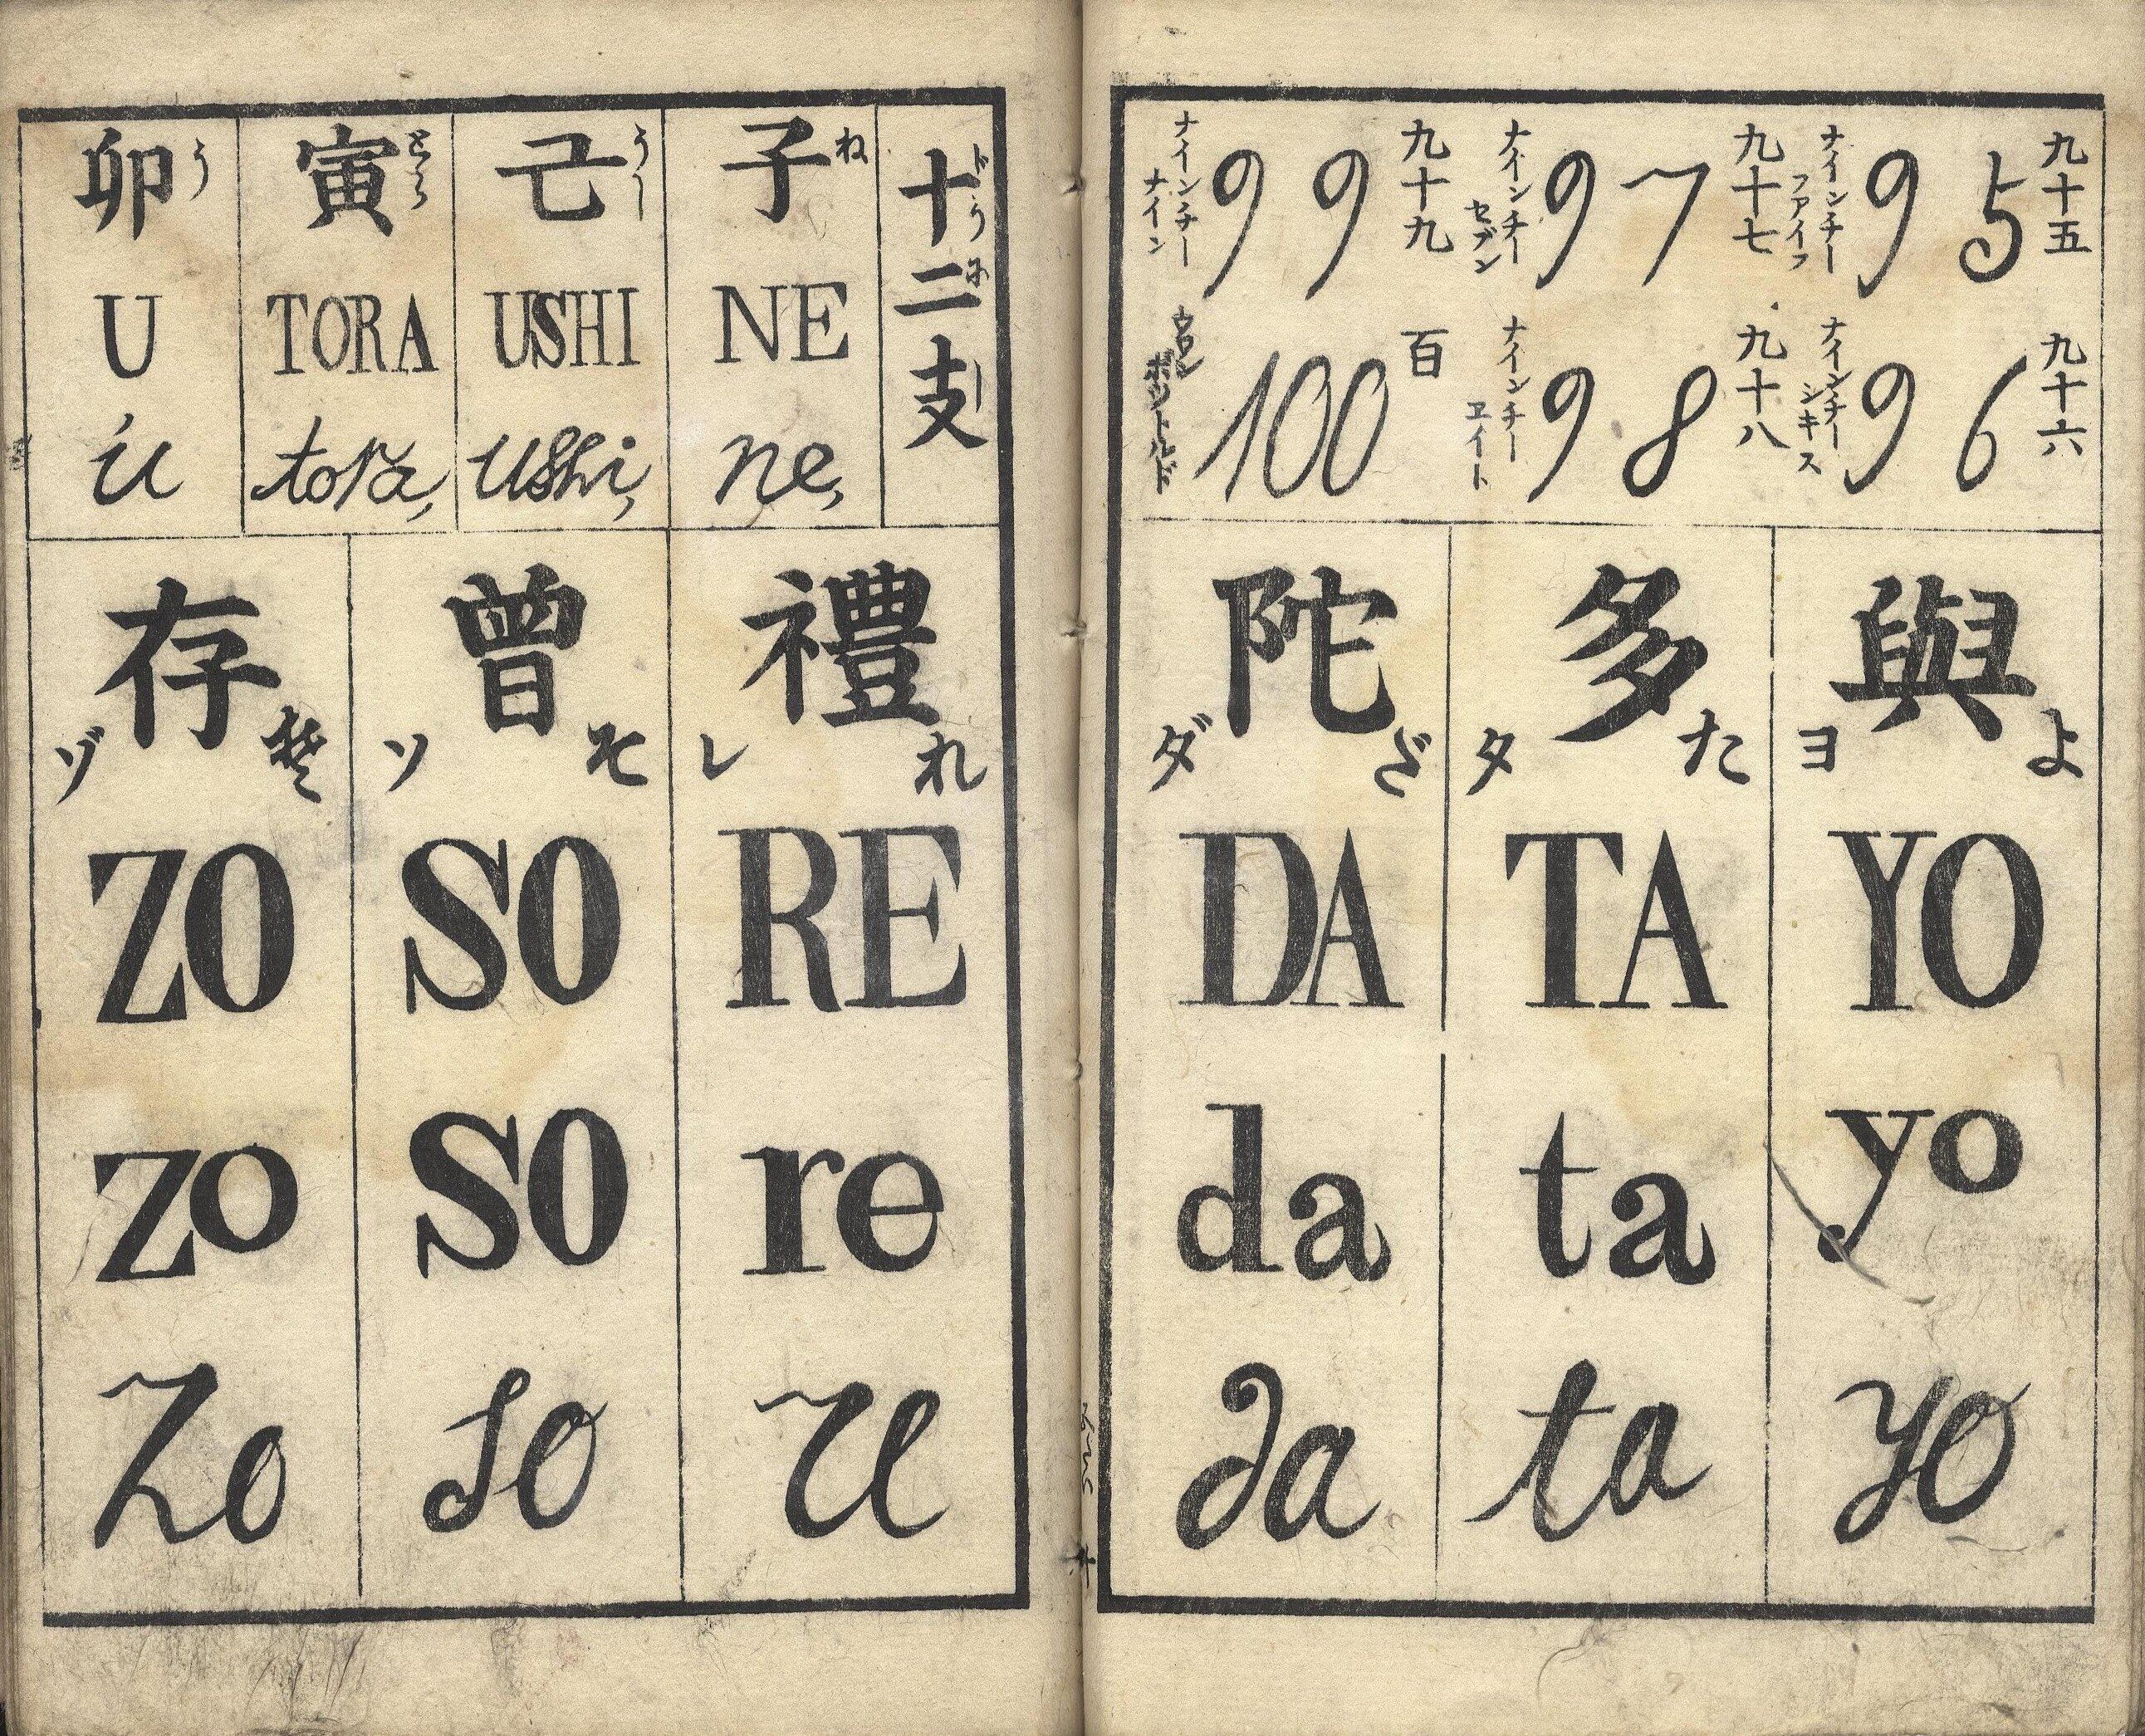 九十五
95
ナインチー
ファイフ
九十六
96
ナインチー
シキス
九十七
97
ナインチー
セブン
九十八
98
ナインチー
ヱイト
九十九
99
ナインチー
ナイン
百
100
與
よ
ヨ
YO
yo
yo
多
た
タ
TA
ta
ta
陀
ざ
ダ
DA
da
da
十二支
子
ね
NE
ne,
己
うし
USHI
ushi,
寅
とら
TORA
tora,
卯
う
U
u
禮
れ
レ
RE
re
re
曽
そ
ソ
SO
so
so
存
ゾ
ZO
zo
zo